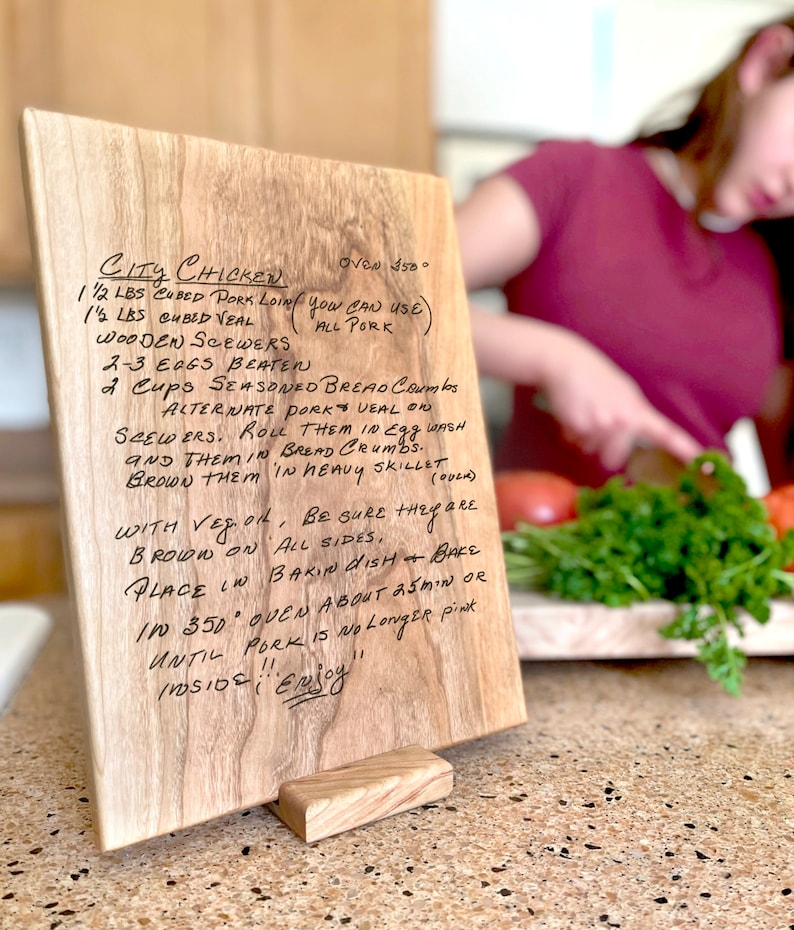 City Chicken Oven 350°
1 1/2 LBS CUBED PORK LOIN (YOU CAN USE
1 1/2 LBS CUBED VEAL ALL PORK)
WOODEN SCEWERS
2-3 EGGS BEATEN
2 CUPS SEASONED BREAD CRUMBS
ALTERNATE PORK & VEAL ON
SCEWERS. ROLL THEM IN EGG WASH
AND THEM IN BREAD CRUMBS.
BROWN THEM IN HEAVY SKILLET
(OVER)
WITH VEG. OIL, BE SURE THEY ARE
BROWN ON ALL SIDES.
PLACE IN BAKIN DISH & BAKE
IN 350° OVEN ABOUT 25 MIN OR
UNTIL PORK IS NO LONGER PINK
INSIDE!! "ENJOY"